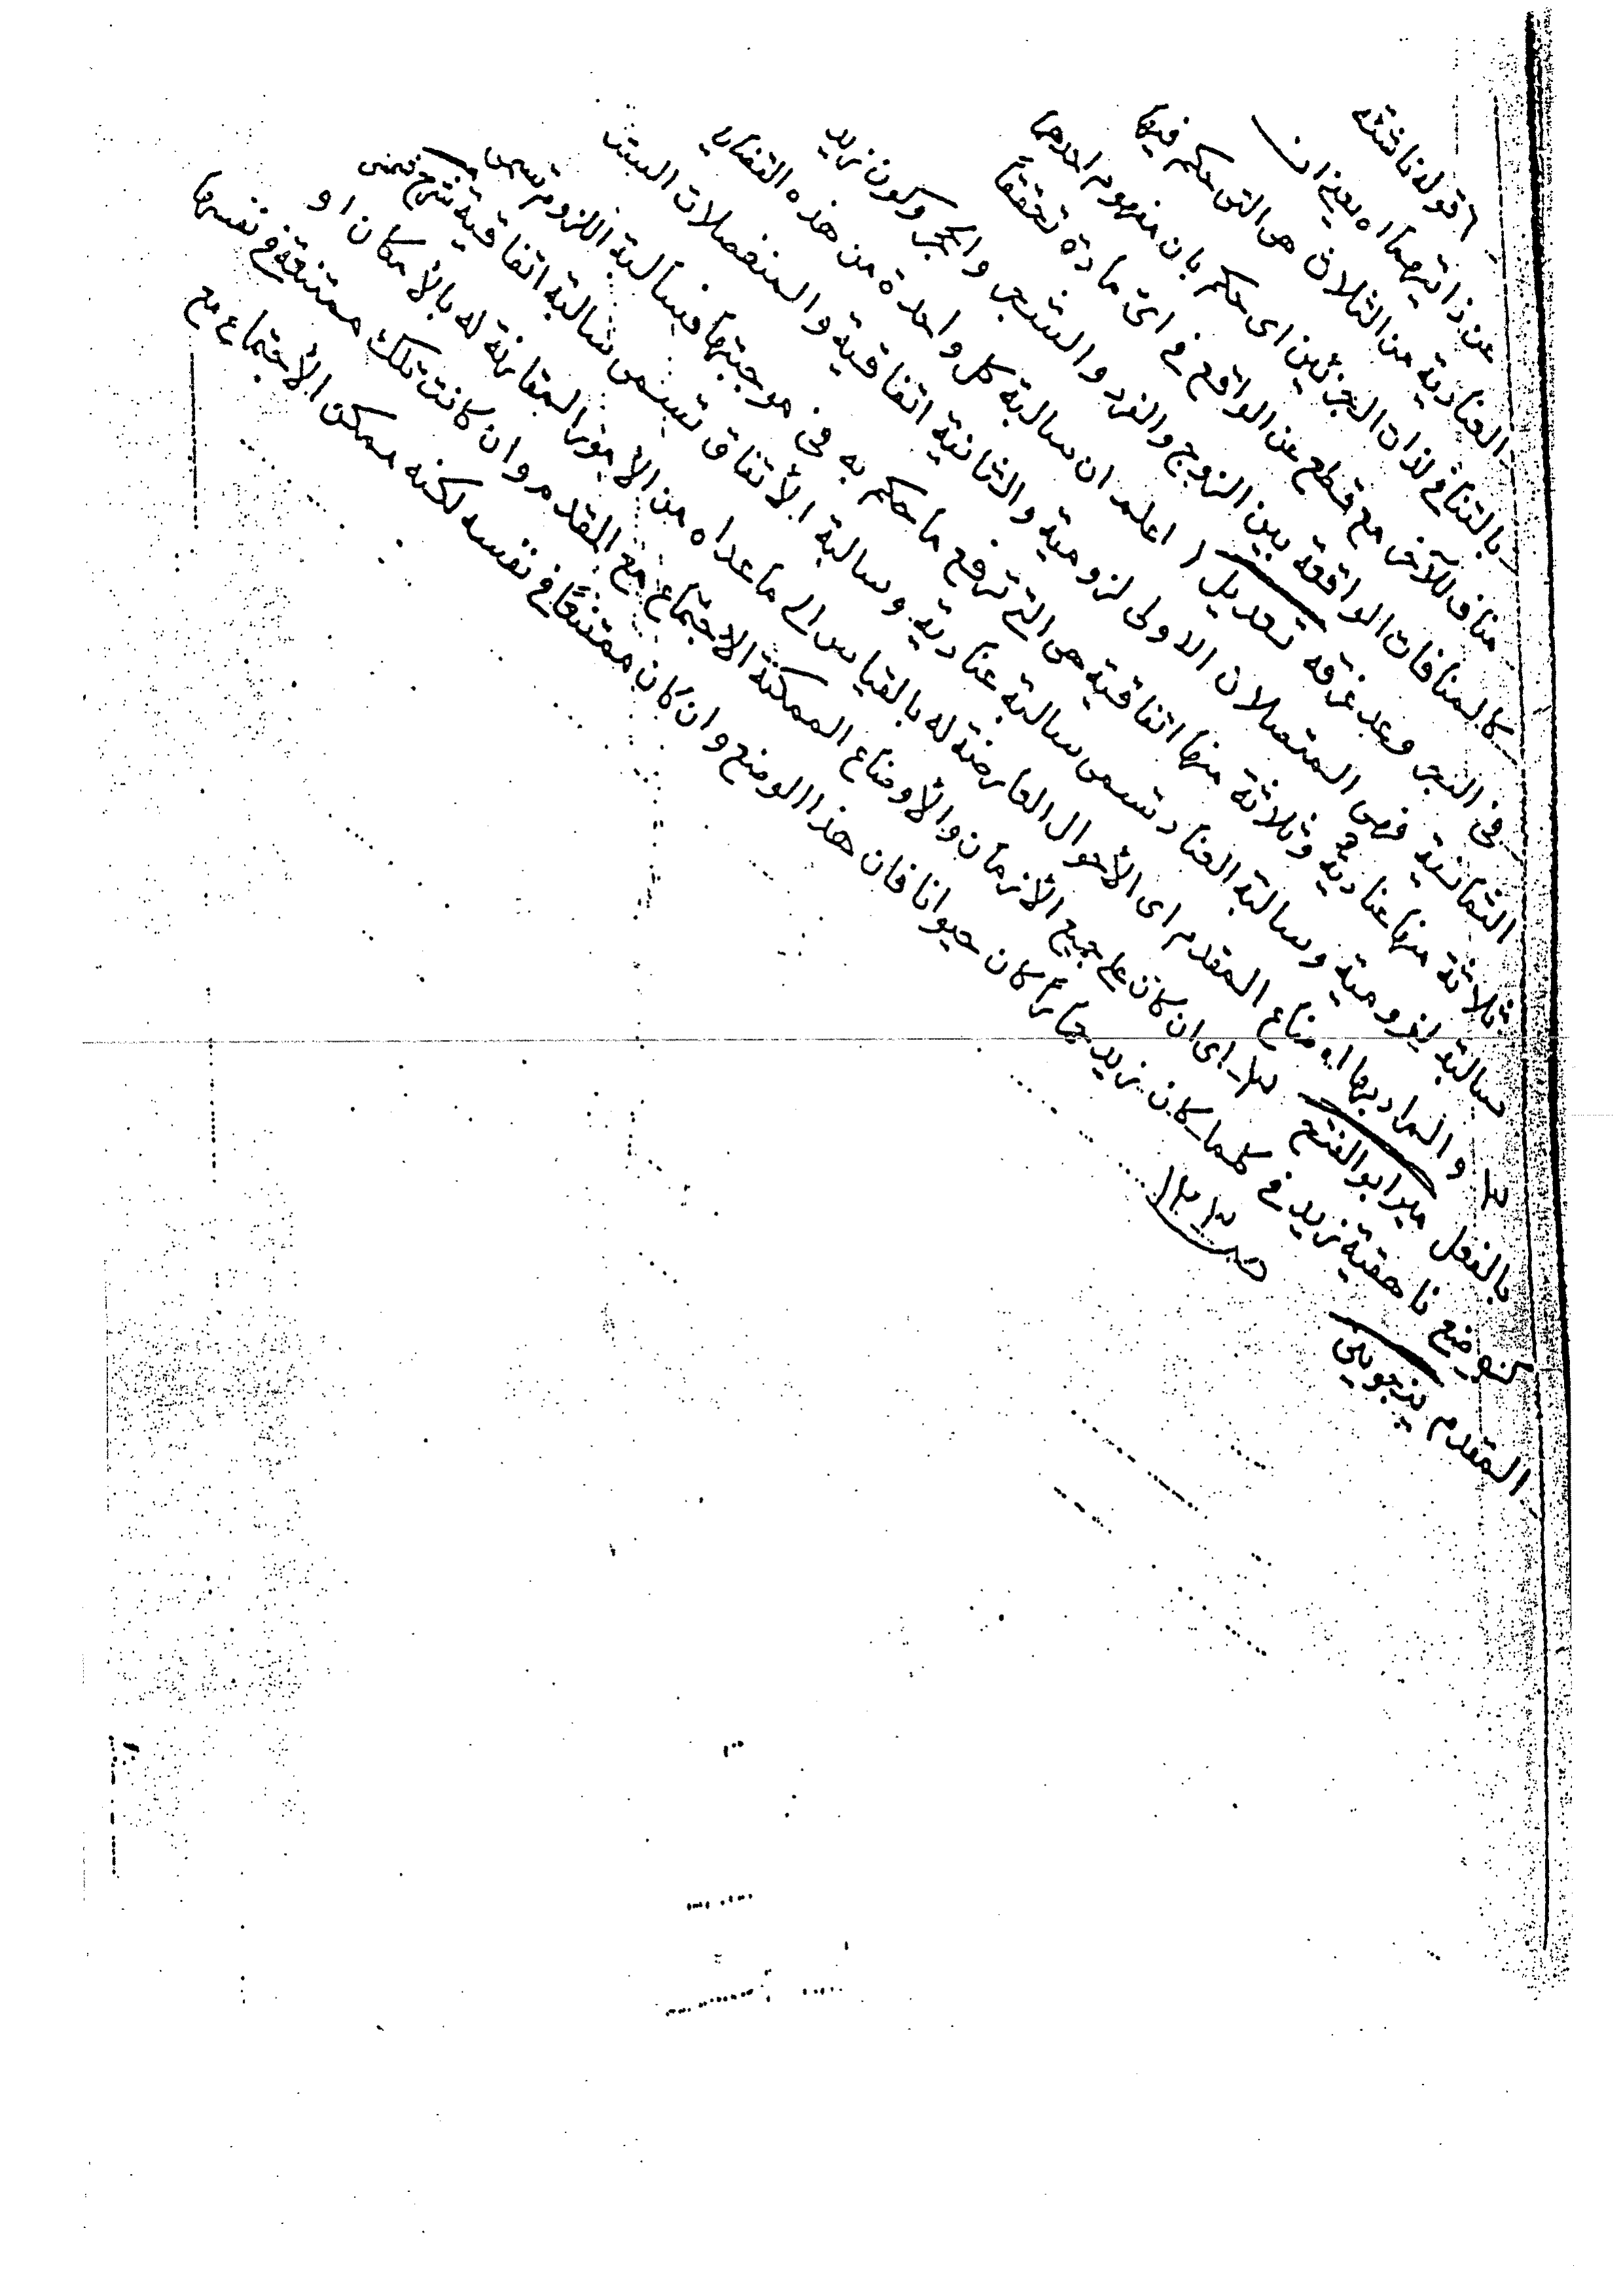 ٦ قوله ناشئة
عن ذاتيهما اه يعني ان
العنادية من الثلاث هى التى حكم فيها
بالتنافى لذات الجزئين اى حكم بان مفهوم احدهما
مناف للآخر مع قطع عن الواقع فى اى مادة تحققا
كالمنافات الواقعة بين الزوج والفرد والشجر والحجر وكون زيد
فى البحر وعدم غرقه تعديل ١ اعلم ان سالبة كل واحدة من هذه القضايا
الثمانية فهى المتصلات الاولى لزومية والثانية اتفاقية والمنفصلات الستة
ثلاثة منها عنادية وثلاثة منها اتفاقية هى التى ترفع ما حكم به فى موجبتها فسالبة اللزوم تسمى
سالبة لزومية وسالبة العناد تسمى سالبة عنادية وسالبة الأتفاق تسمى سالبة اتفاقية شرح شمسى
٣ والمراد بها اوضاع المقدم اى الأحوال العارضة له بالقياس الى ما عداه من الامور المقارنة له بالأمكان او
بالفعل مير ابو الفتح ٣ اى ان كان على جميع الأزمان والأوضاع الممكنة الاجتماع مع المقدم وان كانت تلك ممتنعة فى نفسها
كوضع ناهقية زيد فى كلما كان زيد حمارا كان حيوانا فان هذا الوضع وان كان ممتنعا فى نفسه لكنه ممكن الأجتماع مع
المقدم پنجوينى صـ ١٢٣